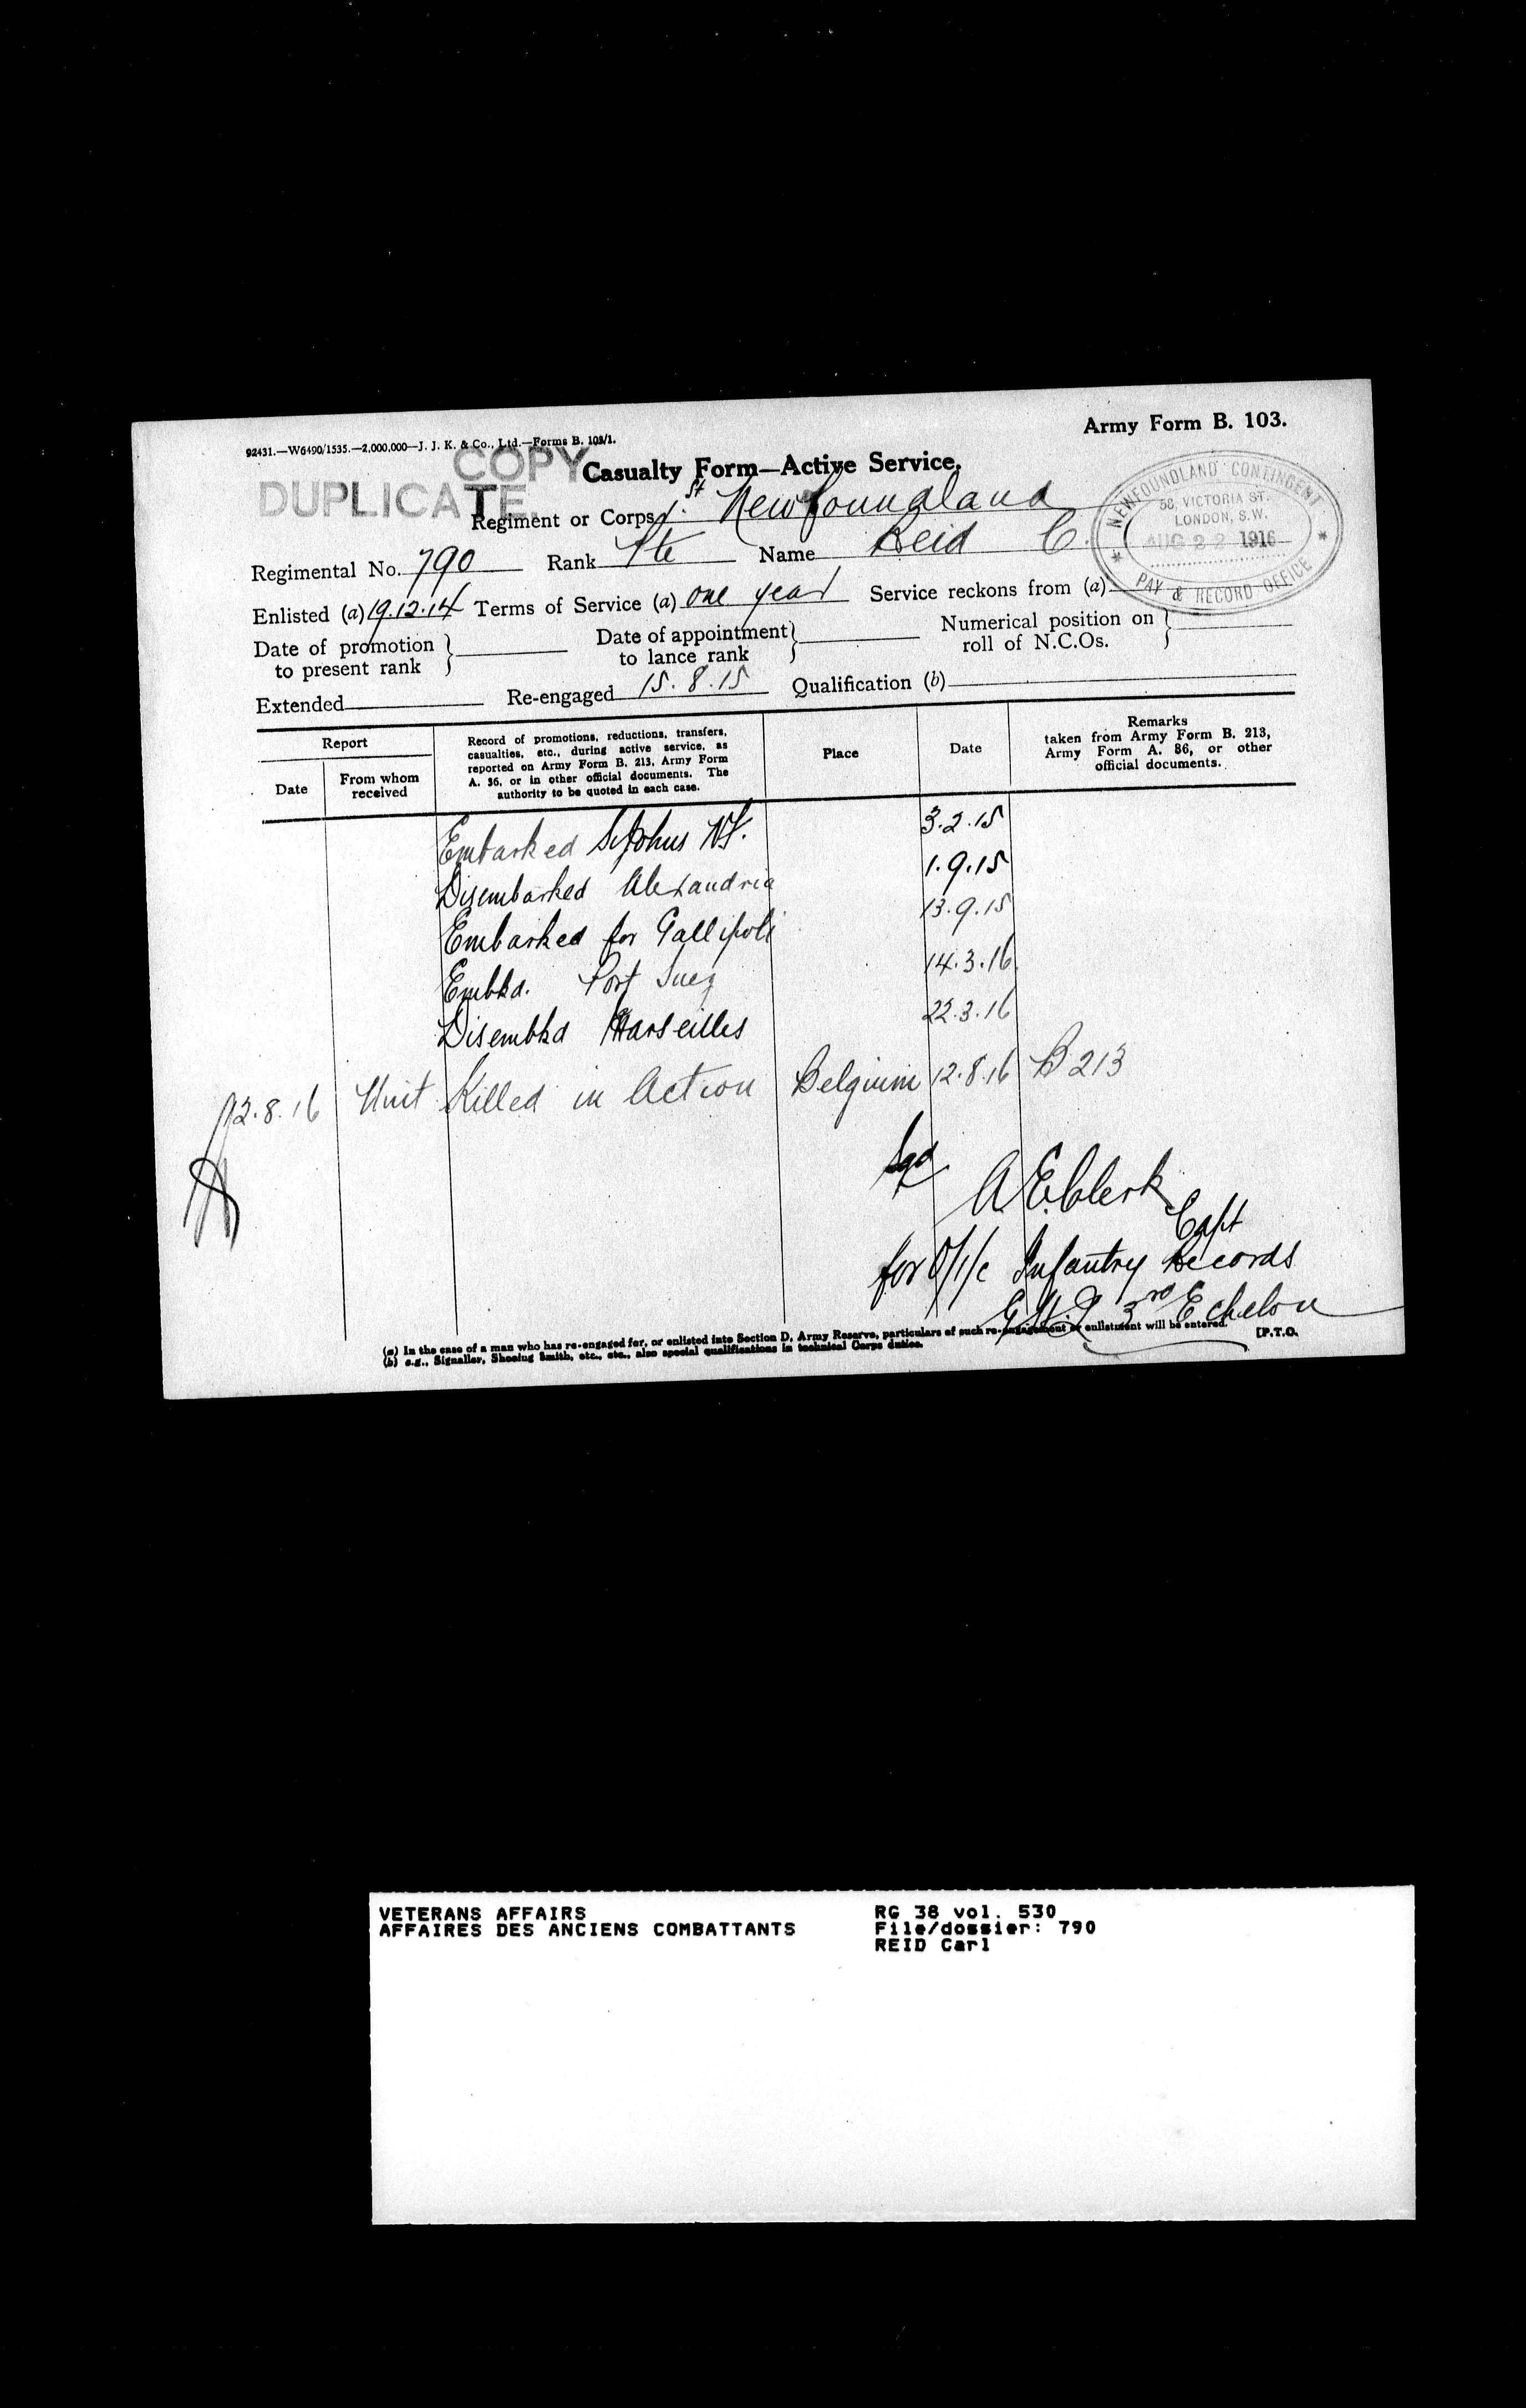 Army Form B. 103.
92431.—W6490/1535.—2,000,000—J. J. K. & Co., Ltd.—Forms B. 103/1.
COPY
DUPLICATE.
Casualty Form—Active Service.
NEWFOUNDLAND CONTINGENT
58, VICTORIA ST.
LONDON, S.W.
AUG 22 1916
PAY & RECORD OFFICE
Regiment or Corps 1st Newfoundland
Regimental No. 790 Rank Pte Name Reid C.
Enlisted (a) 19.12.14 Terms of Service (a) one year Service reckons from (a)
Date of promotion to present rank } Date of appointment to lance rank } Numerical position on roll of N.C.Os. }
Extended Re-engaged 15.8.15 Qualification (b)
Report
Date
From whom received
Record of promotions, reductions, transfers, casualties, etc., during active service, as reported on Army Form B. 213, Army Form A. 36, or in other official documents. The authority to be quoted in each case.
Place
Date
Remarks taken from Army Form B. 213, Army Form A. 36, or other official documents.
Embarked St Johns Nf. 3.2.15
Disembarked Alexandria 1.9.15
Embarked for Gallipoli 13.9.15
Embkd. Port Suez 14.3.16
Disembkd Marseilles 22.3.16
12.8.16 Unit Killed in Action Belgium 12.8.16 B 213
Sgd
A.E. Clerk
Capt
for O/i/c Infantry Records
G.H.Q 3rd Echelon
(a) In the case of a man who has re-engaged for, or enlisted into Section D, Army Reserve, particulars of such re-engagement or enlistment will be entered.
(b) e.g., Signaller, Shoeing Smith, etc., etc., also special qualifications in technical Corps duties.
[P.T.O.
VETERANS AFFAIRS
AFFAIRES DES ANCIENS COMBATTANTS
RG 38 vol. 530
File/dossier: 790
REID Carl